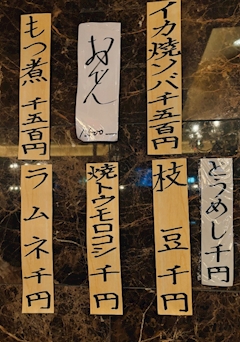 イカ焼ソバ 千五百円
おでん
1,500
もつ煮 千五百円
とうめし千円
枝豆 千円
焼トウモロコシ 千円
ラムネ千円